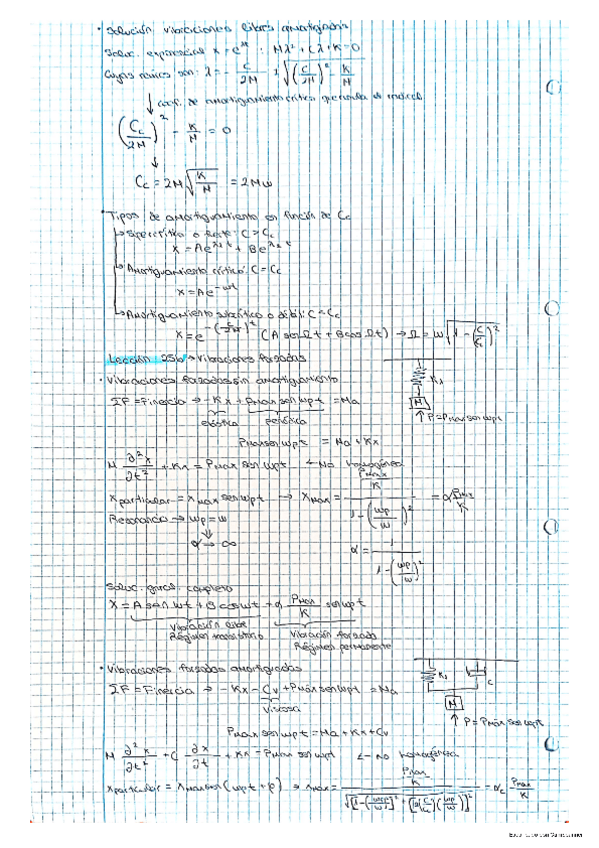 • Solución vibraciones libres amortiguadas
Soluc. exponencial x = e^λt : Mλ² + Cλ + K = 0
Cuyas raíces son: λ = - C/2M ± √((C/2M)² - K/M)
↓ coef. de amortiguamiento crítico que anula el radical
(Cc/2M)² - K/M = 0
↓
Cc = 2M√(K/M) = 2Mω
• Tipos de amortiguamiento en función de Cc
↳ Supercrítico o fuerte: C > Cc
x = Ae^λ₁t + Be^λ₂t
↳ Amortiguamiento crítico: C = Cc
x = Ae^-ωt
↳ Amortiguamiento subcrítico o débil: C < Cc
x = e^-(C/2M)t (A sen Ωt + B cos Ωt) → Ω = ω√(1 - (C/Cc)²)
Lección 25b → Vibraciones forzadas
• Vibraciones forzadas sin amortiguamiento
ΣF = Finercia → -Kx + Pmax sen wpt = Ma
elástica periódica
K₁
M
↑ P = Pmax sen wpt
Pmax sen wpt = Ma + Kx
M ∂²x/∂t² + Kx = Pmax sen wpt ← No homogénea
xparticular = xmax sen wpt → xmax = (Pmax/K)/(1 - (wp/w)²) = α Pmax/K
Resonancia → wp = w
⇓
α → ∞
α = 1/(1 - (wp/w)²)
Soluc. gral. completo
x = A sen wt + B cos wt + α Pmax/K sen wpt
Vibración libre Vibración forzada
Régimen transitorio Régimen permanente
• Vibraciones forzadas amortiguadas
ΣF = Finercia → -Kx - Cv + Pmax sen wpt = Ma
viscosa
K₁ C
M
↑ P = Pmax sen wpt
Pmax sen wpt = Ma + Kx + Cv
M ∂²x/∂t² + C ∂x/∂t + Kx = Pmax sen wpt ← no homogénea
xparticular = xmax sen (wpt + φ) → xmax = (Pmax/K)/√([1 - (wp/w)²]² + [2(C/Cc)(wp/w)]²) = αc Pmax/K